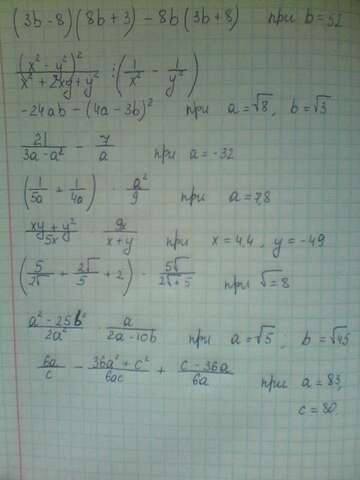 (3b-8)(8b+3) - 8b(3b+8) при b=52
(x² - y²)² / x² + 2xy + y² : (1/x² - 1/y²)
-24ab - (4a - 3b)² при a=√8, b=√3
21/3a-a² - 7/a при a=-32
(1/5a + 1/4a) · a²/9 при a=7,8
xy+y²/5x · 9x/x+y при x=4,4, y=-4,9
(5/2√ + 2√/5 + 2) · 5√/2√+5 при √=8
a² - 25b²/2a² · a/2a-10b при a=√5; b=√45
6a/c - 36a²+c²/6ac + c-36a/6a при a=83,
c=80